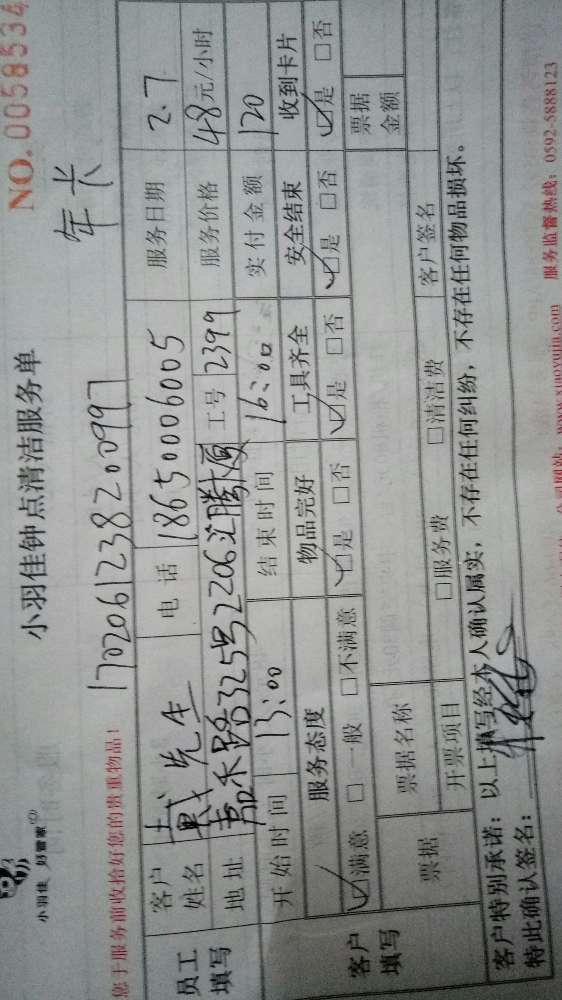 小羽佳 好管家
小羽佳钟点清洁服务单
NO.0058534
您于服务前收拾好您的贵重物品!
1702061238200997
年卡
员工填写
客户姓名 戴先生 电话 18650006005 服务日期 2.7
地址 嘉禾路325号2206汇腾大厦 工号 2399 服务价格 48元/小时
开始时间 13:00 结束时间 16:00 实付金额 120
客户填写
服务态度 物品完好 工具齐全 安全结束 收到卡片
☑满意 □一般 □不满意 ☑是 □否 ☑是 □否 ☑是 □否 ☑是 □否
票据 票据名称 票据金额
开票项目 □服务费 □清洁费 客户签名
客户特别承诺: 以上填写经本人确认属实, 不存在任何纠纷, 不存在任何物品损坏.
特此确认签名:
公司网站: www.xiaoyujia.com 服务监督热线: 0592-5888123